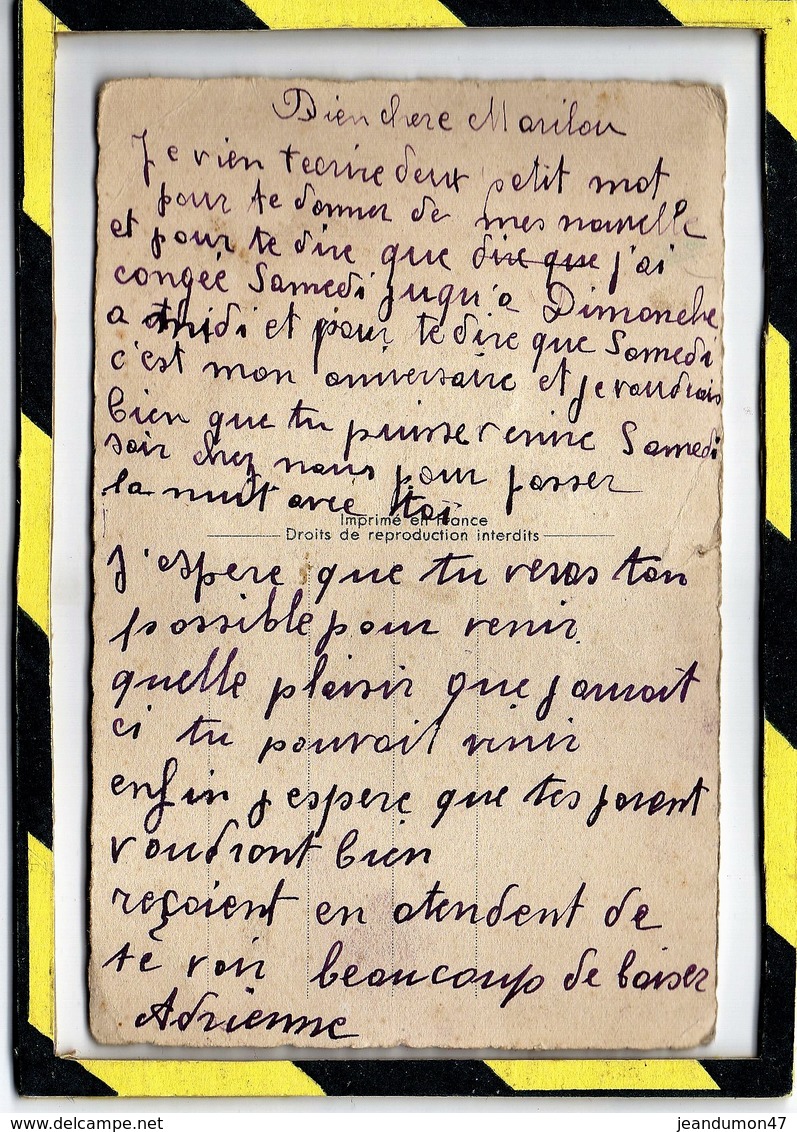 Bien chere Marilou
Je vien tecrire deux petit mot
pour te donner de mes nouvelle
et pour te dire que dire que j'ai
congée Samedi juqu'a Dimonche
a midi et pour te dire que Samedi
c'est mon aniversaire et je voudrais
bien que tu puisse venire Samedi
soir chez nous pour passer
la nuit avec toi
Imprimé en France
Droits de reproduction interdits
J'espere que tu veras ton
possible pour venir
quelle plaisir que jaurait
ci tu pouvait venir
enfin j'espere que tes parent
voudront bien
reçoient en atendent de
te voir beaucoup de baiser
Adrienne
delcampe.net
jeandumon47